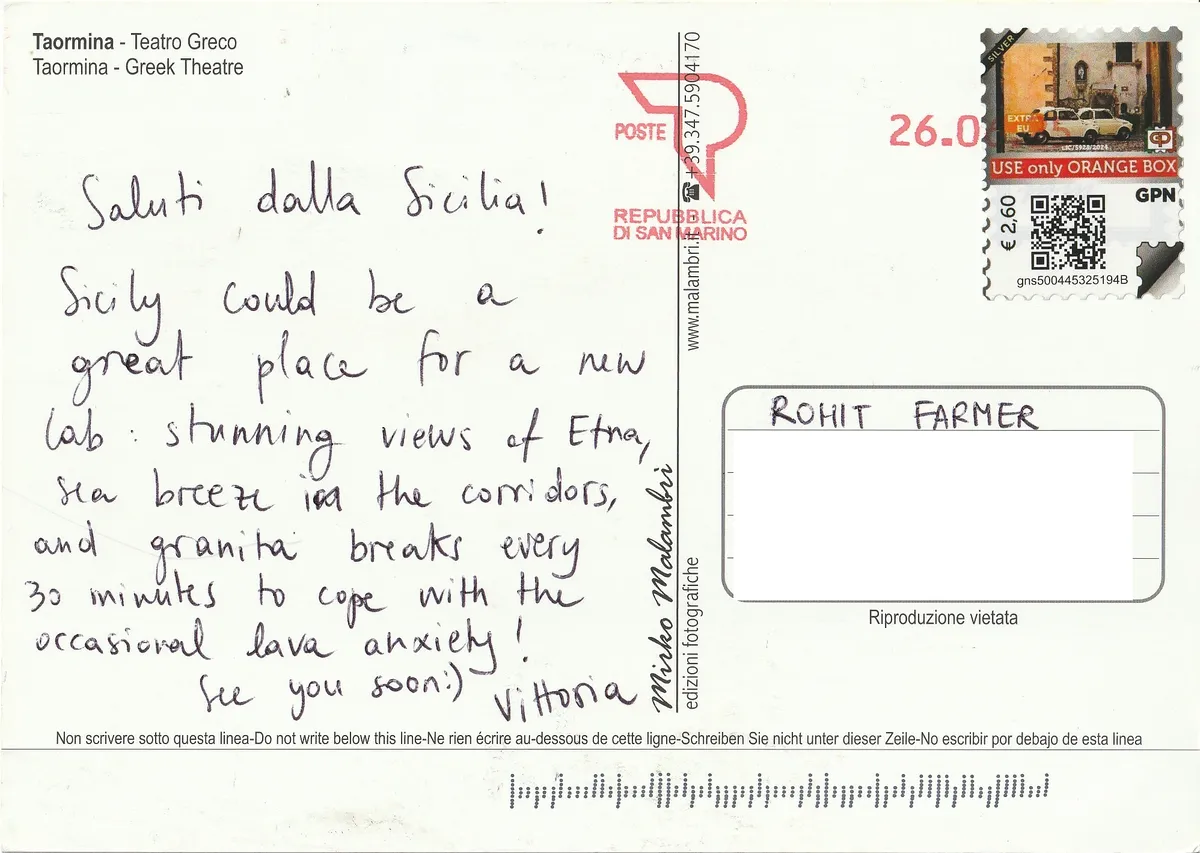 Taormina - Teatro Greco
Taormina - Greek Theatre
Saluti dalla Sicilia!
Sicily could be a
great place for a new
lab: stunning views of Etna,
sea breeze in the corridors,
and granita breaks every
30 minutes to cope with the
occasional lava anxiety!
See you soon:)
Vittoria
Mirko Malambrì
edizioni fotografiche
www.malambri.it - ☎ +39.347.5904170
POSTE
REPUBBLICA
DI SAN MARINO
26.0
SILVER
EXTRA
EU
LIC/5928/2024
USE only ORANGE BOX
€ 2,60
GPN
gns500445325194B
ROHIT FARMER
Riproduzione vietata
Non scrivere sotto questa linea-Do not write below this line-Ne rien écrire au-dessous de cette ligne-Schreiben Sie nicht unter dieser Zeile-No escribir por debajo de esta linea